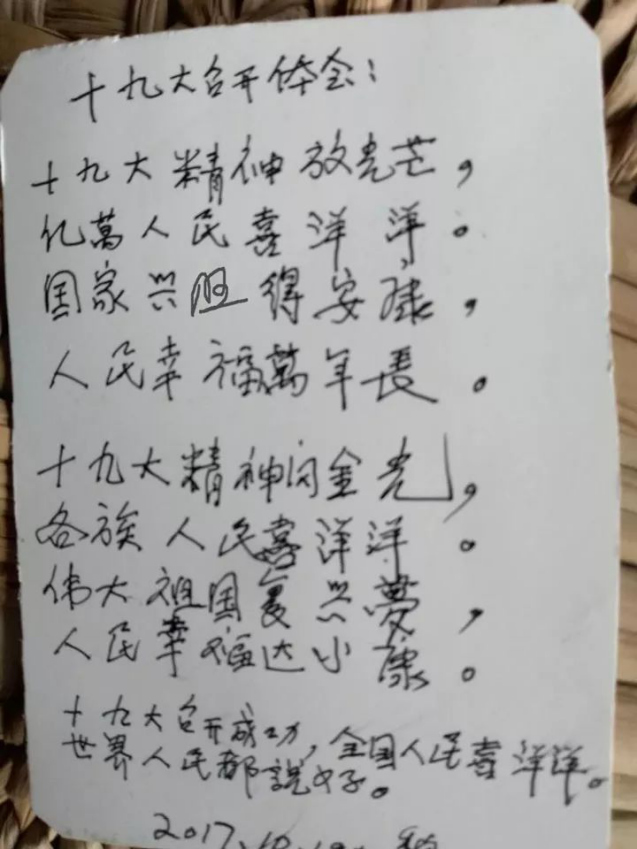 十九大召开体会：
十九大精神放光芒，
亿萬人民喜洋洋。
国家兴旺得安康，
人民幸福萬年長。
十九大精神闪金光，
各族人民喜洋洋。
伟大祖国复兴夢，
人民幸福达小康。
十九大召开成功，全国人民喜洋洋。
世界人民都説好。
2017.10.